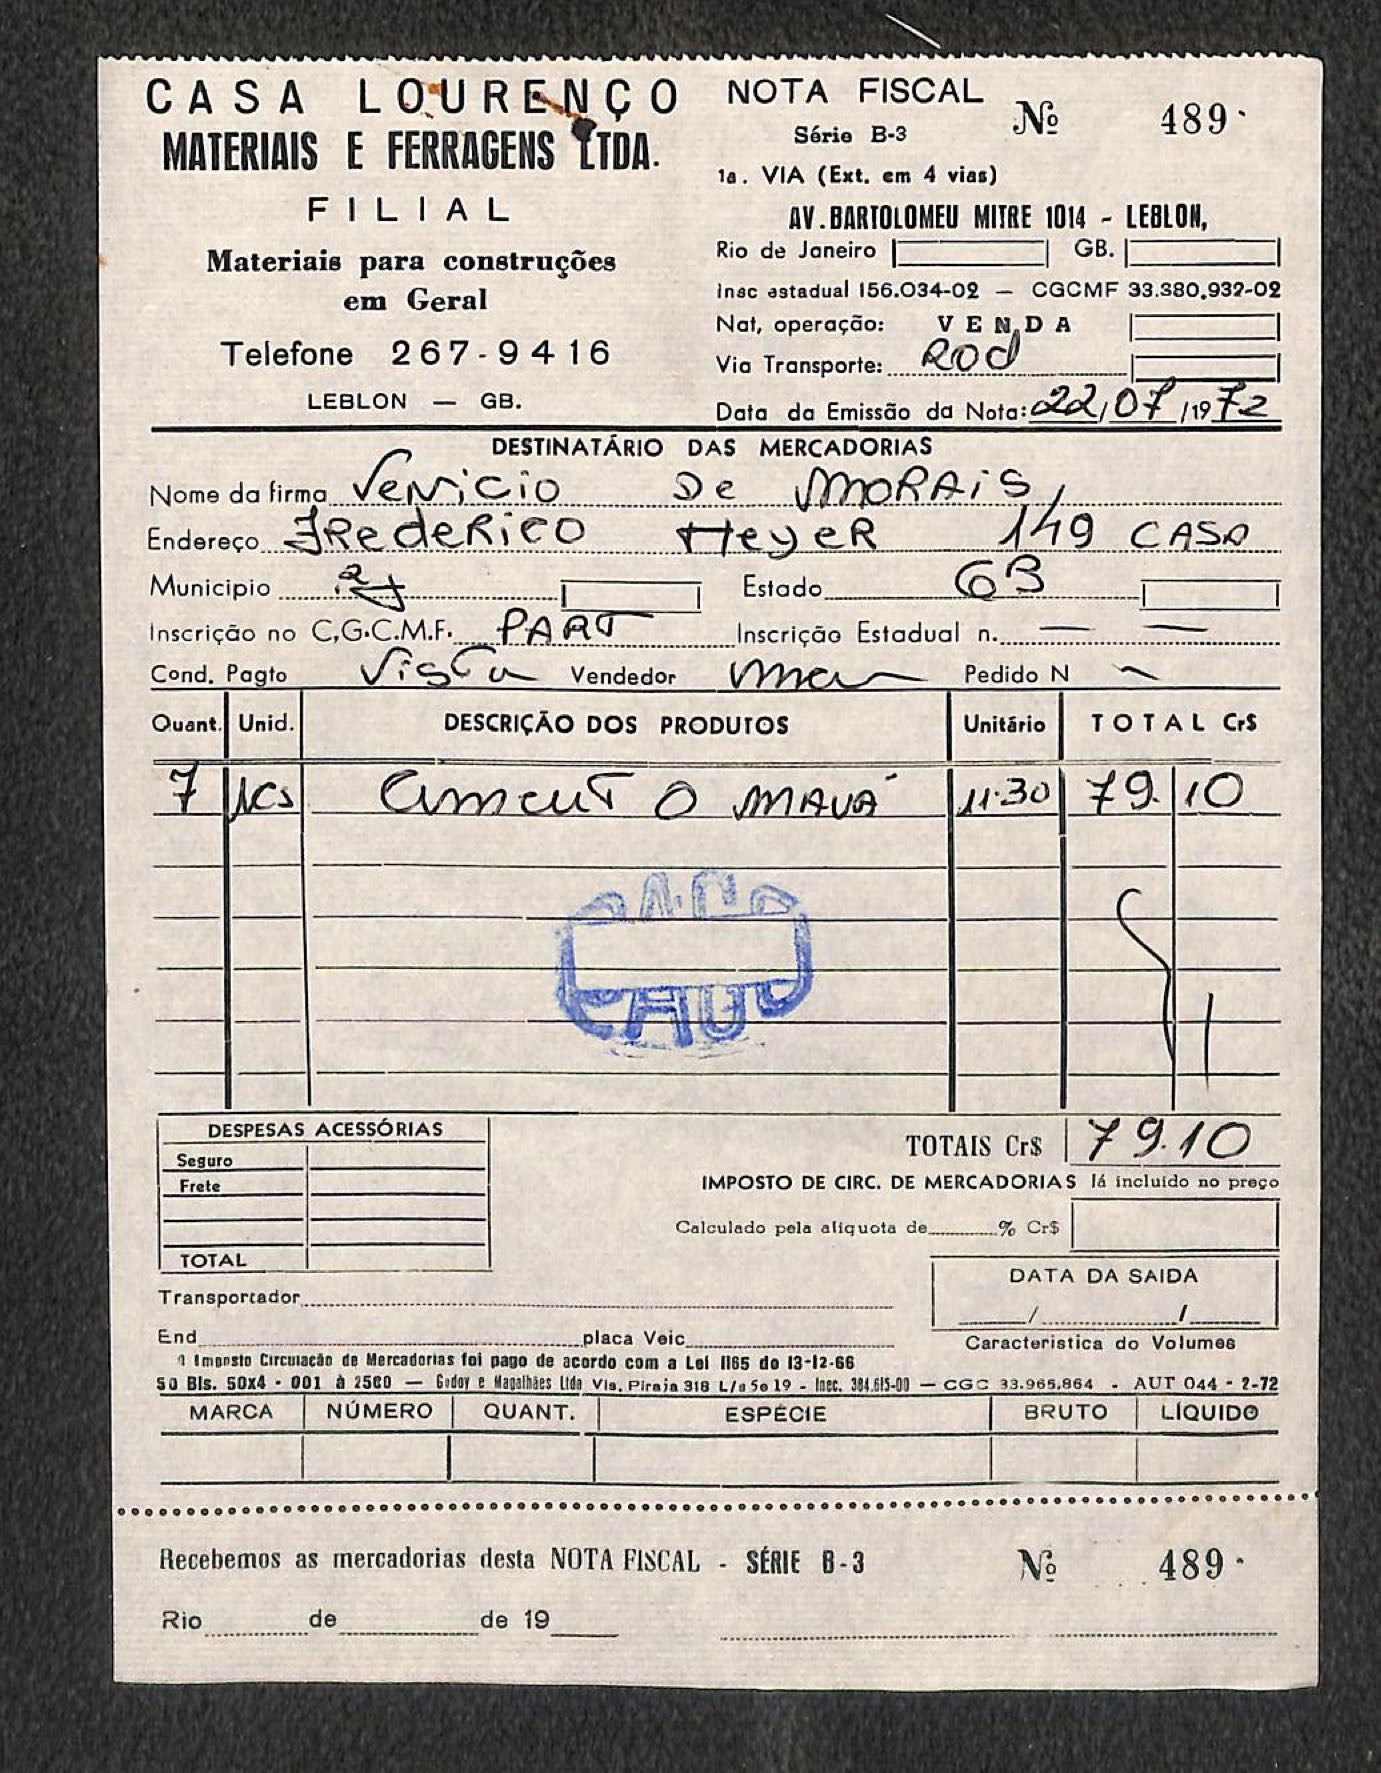 CASA LOURENÇO
MATERIAIS E FERRAGENS LTDA.
FILIAL
Materiais para construções
em Geral
Telefone 267-9416
LEBLON — GB.
NOTA FISCAL
Série B-3
Nº 489
1a. VIA (Ext. em 4 vias)
AV. BARTOLOMEU MITRE 1014 - LEBLON,
Rio de Janeiro GB.
Insc estadual 156.034-02 — CGCMF 33.380.932-02
Nat, operação: VENDA
Via Transporte: Rod
Data da Emissão da Nota: 22/07/1972
DESTINATÁRIO DAS MERCADORIAS
Nome da firma Venicio De MORAiS,
Endereço FRedeRico HeyeR 149 CASA
Municipio RJ Estado GB
Inscrição no C,G.C.M.F. PART Inscrição Estadual n. — —
Cond. Pagto Vista Vendedor Pedido N —
Quant. Unid. DESCRIÇÃO DOS PRODUTOS Unitário TOTAL Cr$
7 Cimento MAUÁ 11.30 79.10
DESPESAS ACESSÓRIAS
Seguro
Frete
TOTAL
TOTAIS Cr$ 79.10
IMPOSTO DE CIRC. DE MERCADORIAS Já incluido no preço
Calculado pela alíquota de % Cr$
DATA DA SAIDA
/ /
Transportador
End placa Veic
Caracteristica do Volumes
O Imposto Circulação de Mercadorias foi pago de acordo com a Lei 1165 do 13-12-66
50 Bls. 50x4 - 001 à 2560 — Godoy e Magalhães Ltda Vis. Piraja 318 L/s 5e 19 - Inec. 384.615-00 — CGC 33.965.864 - AUT 044 - 2-72
MARCA NÚMERO QUANT. ESPÉCIE BRUTO LÍQUIDO
Recebemos as mercadorias desta NOTA FISCAL - SÉRIE B-3 Nº 489
Rio de de 19